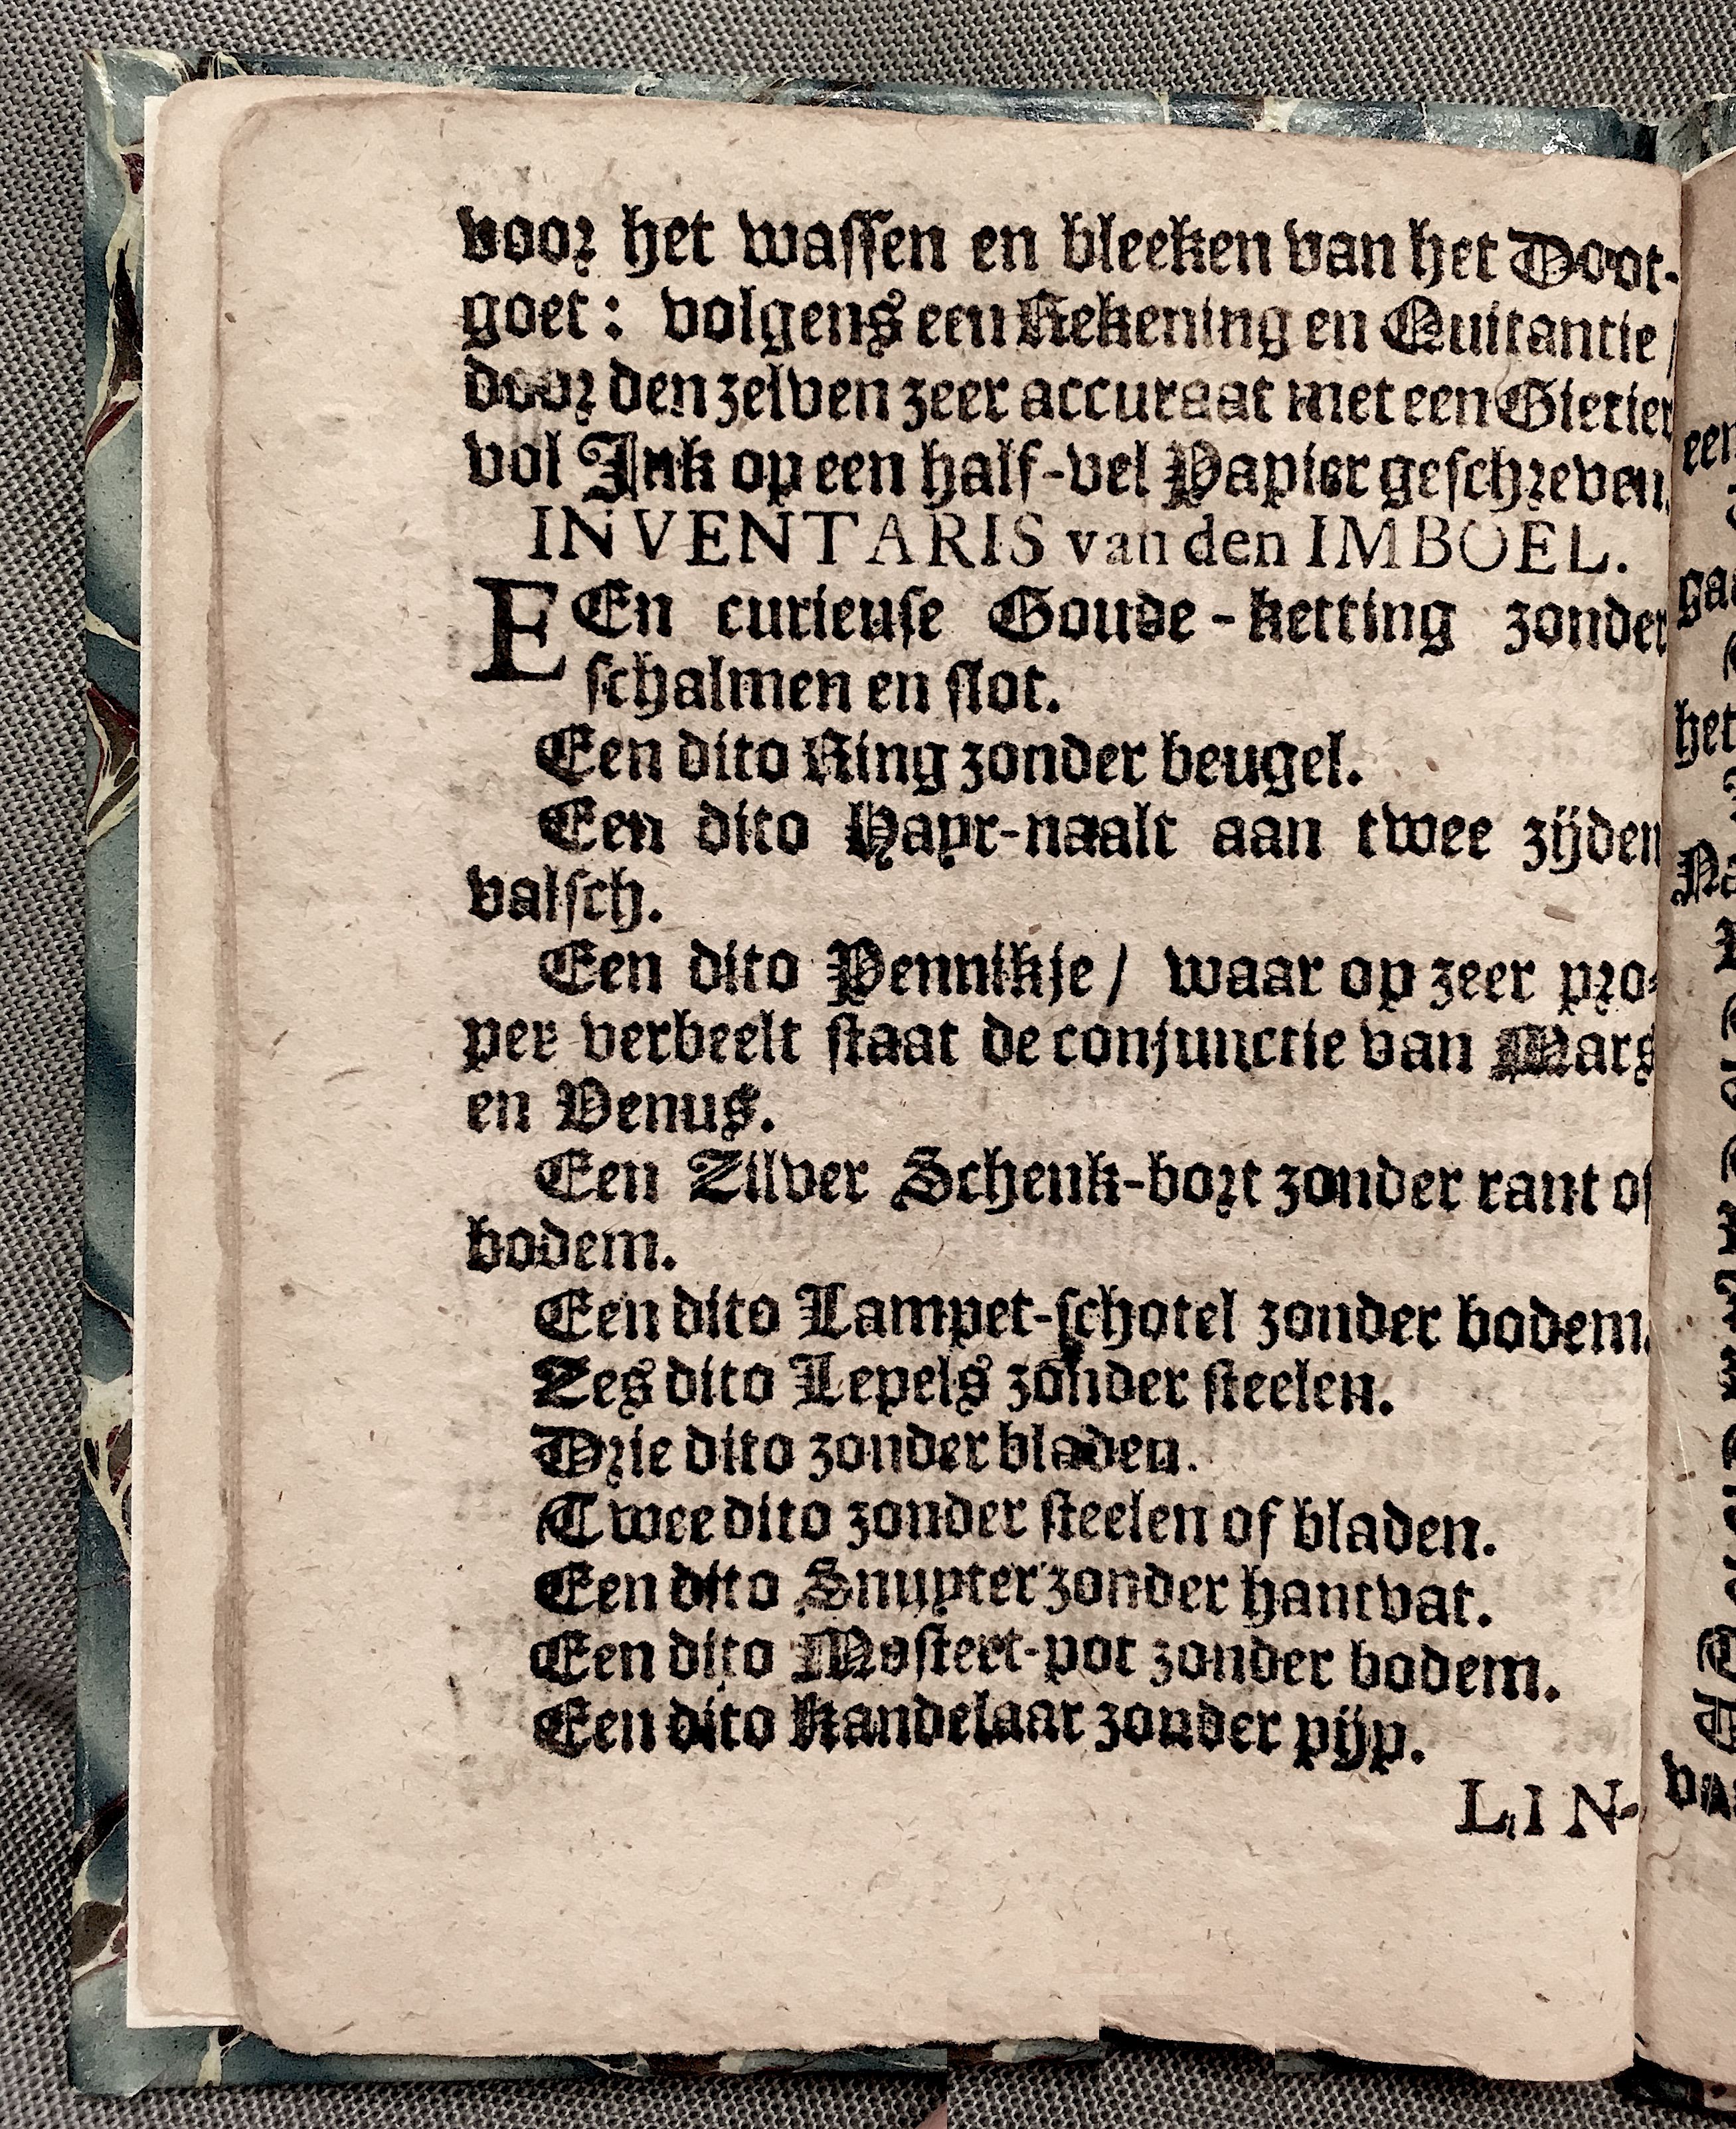 voor het wassen en bleeken van het Doot-
goet: volgens een Rekening en Quitantie /
door den zelven zeer accuraat met een Gieter
vol Ink op een half-vel Papier geschreven.
INVENTARIS van den IMBOEL.
EEn curieuse Goude-ketting zonder
schalmen en slot.
Een dito Ring zonder beugel.
Een dito Hayr-naalt aan twee zijden
valsch.
Een dito Pennikje / waar op zeer pro-
per verbeelt staat de conjunctie van Mars
en Venus.
Een Zilver Schenk-bort zonder rant of
bodem.
Een dito Lampet-schotel zonder bodem.
Zes dito Lepels zonder steelen.
Drie dito zonder bladen.
Twee dito zonder steelen of bladen.
Een dito Snuyter zonder hantvat.
Een dito Mostert-pot zonder bodem.
Een dito Kandelaar zonder pijp.
LIN-